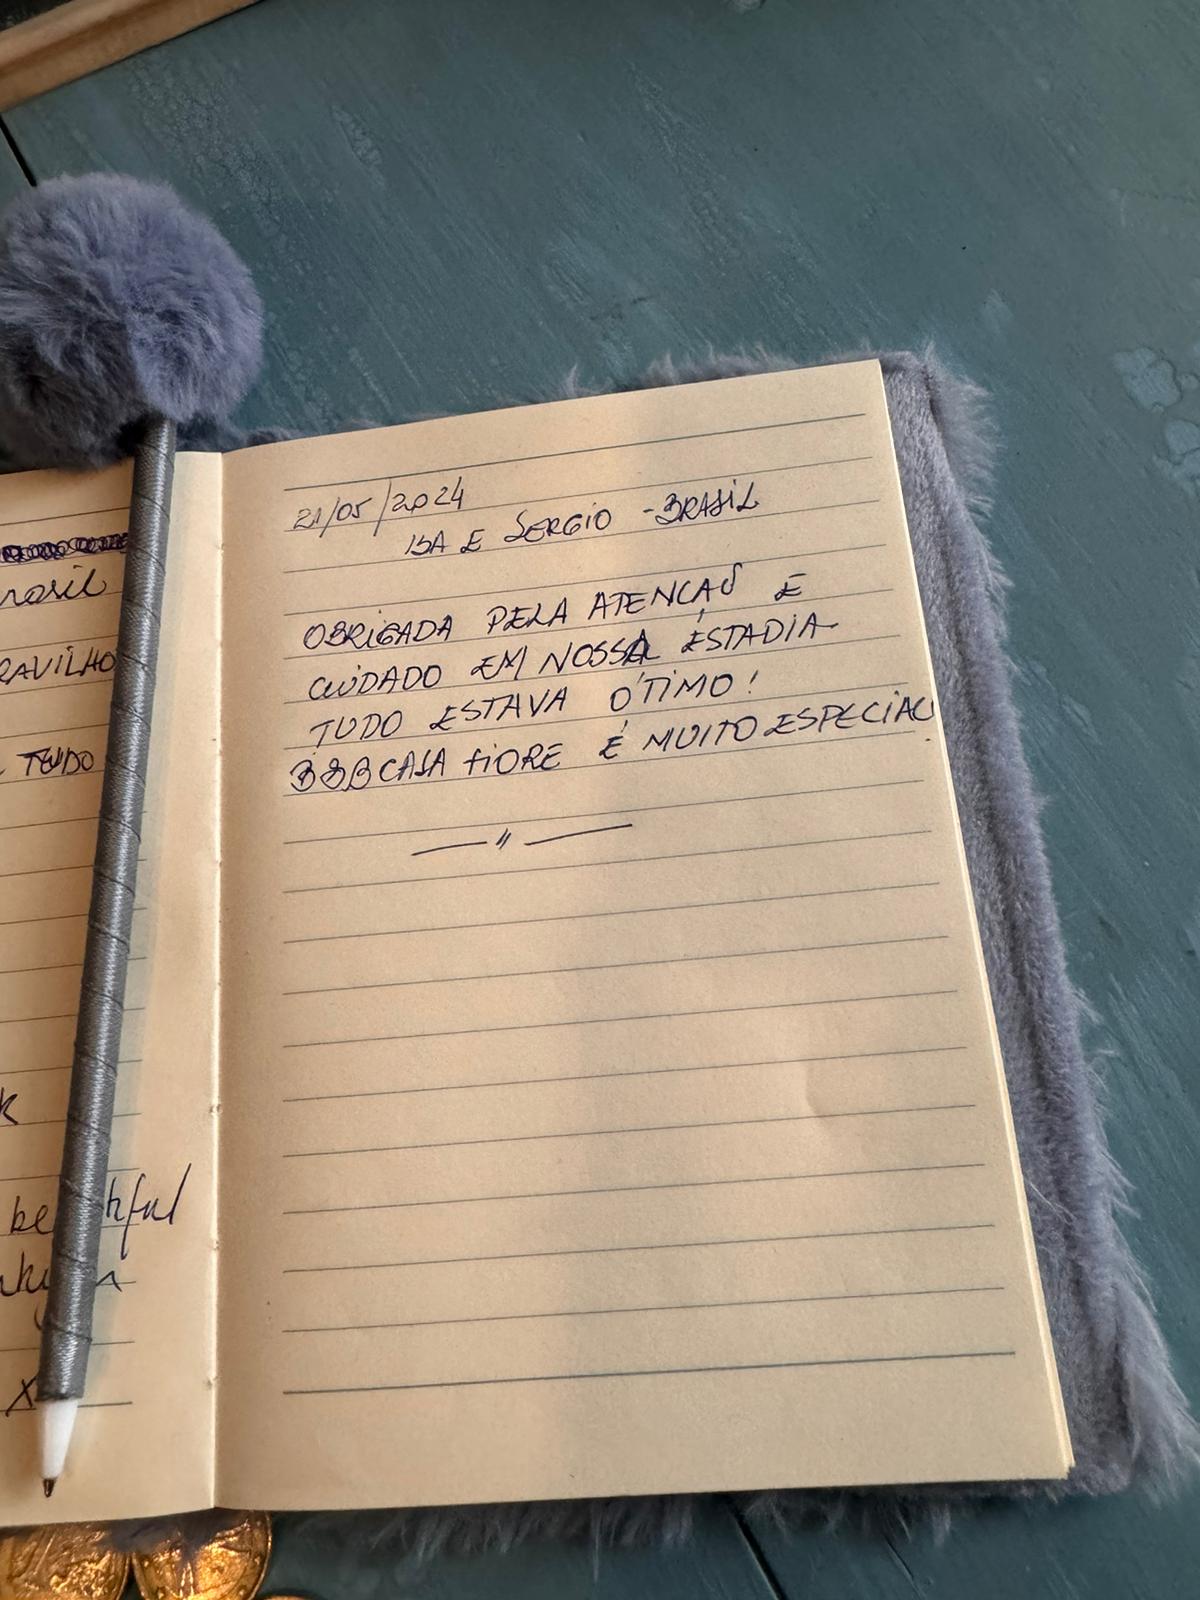 rasil
RAVILHO
TUDO
k
x
21/05/2024
ISA E SERGIO - BRASIL
OBRIGADA PELA ATENCAÕ E
CUIDADO EM NOSSA ESTADIA
TUDO ESTAVA ÓTIMO!
BBB CASA FIORE É MUITO ESPECIAL